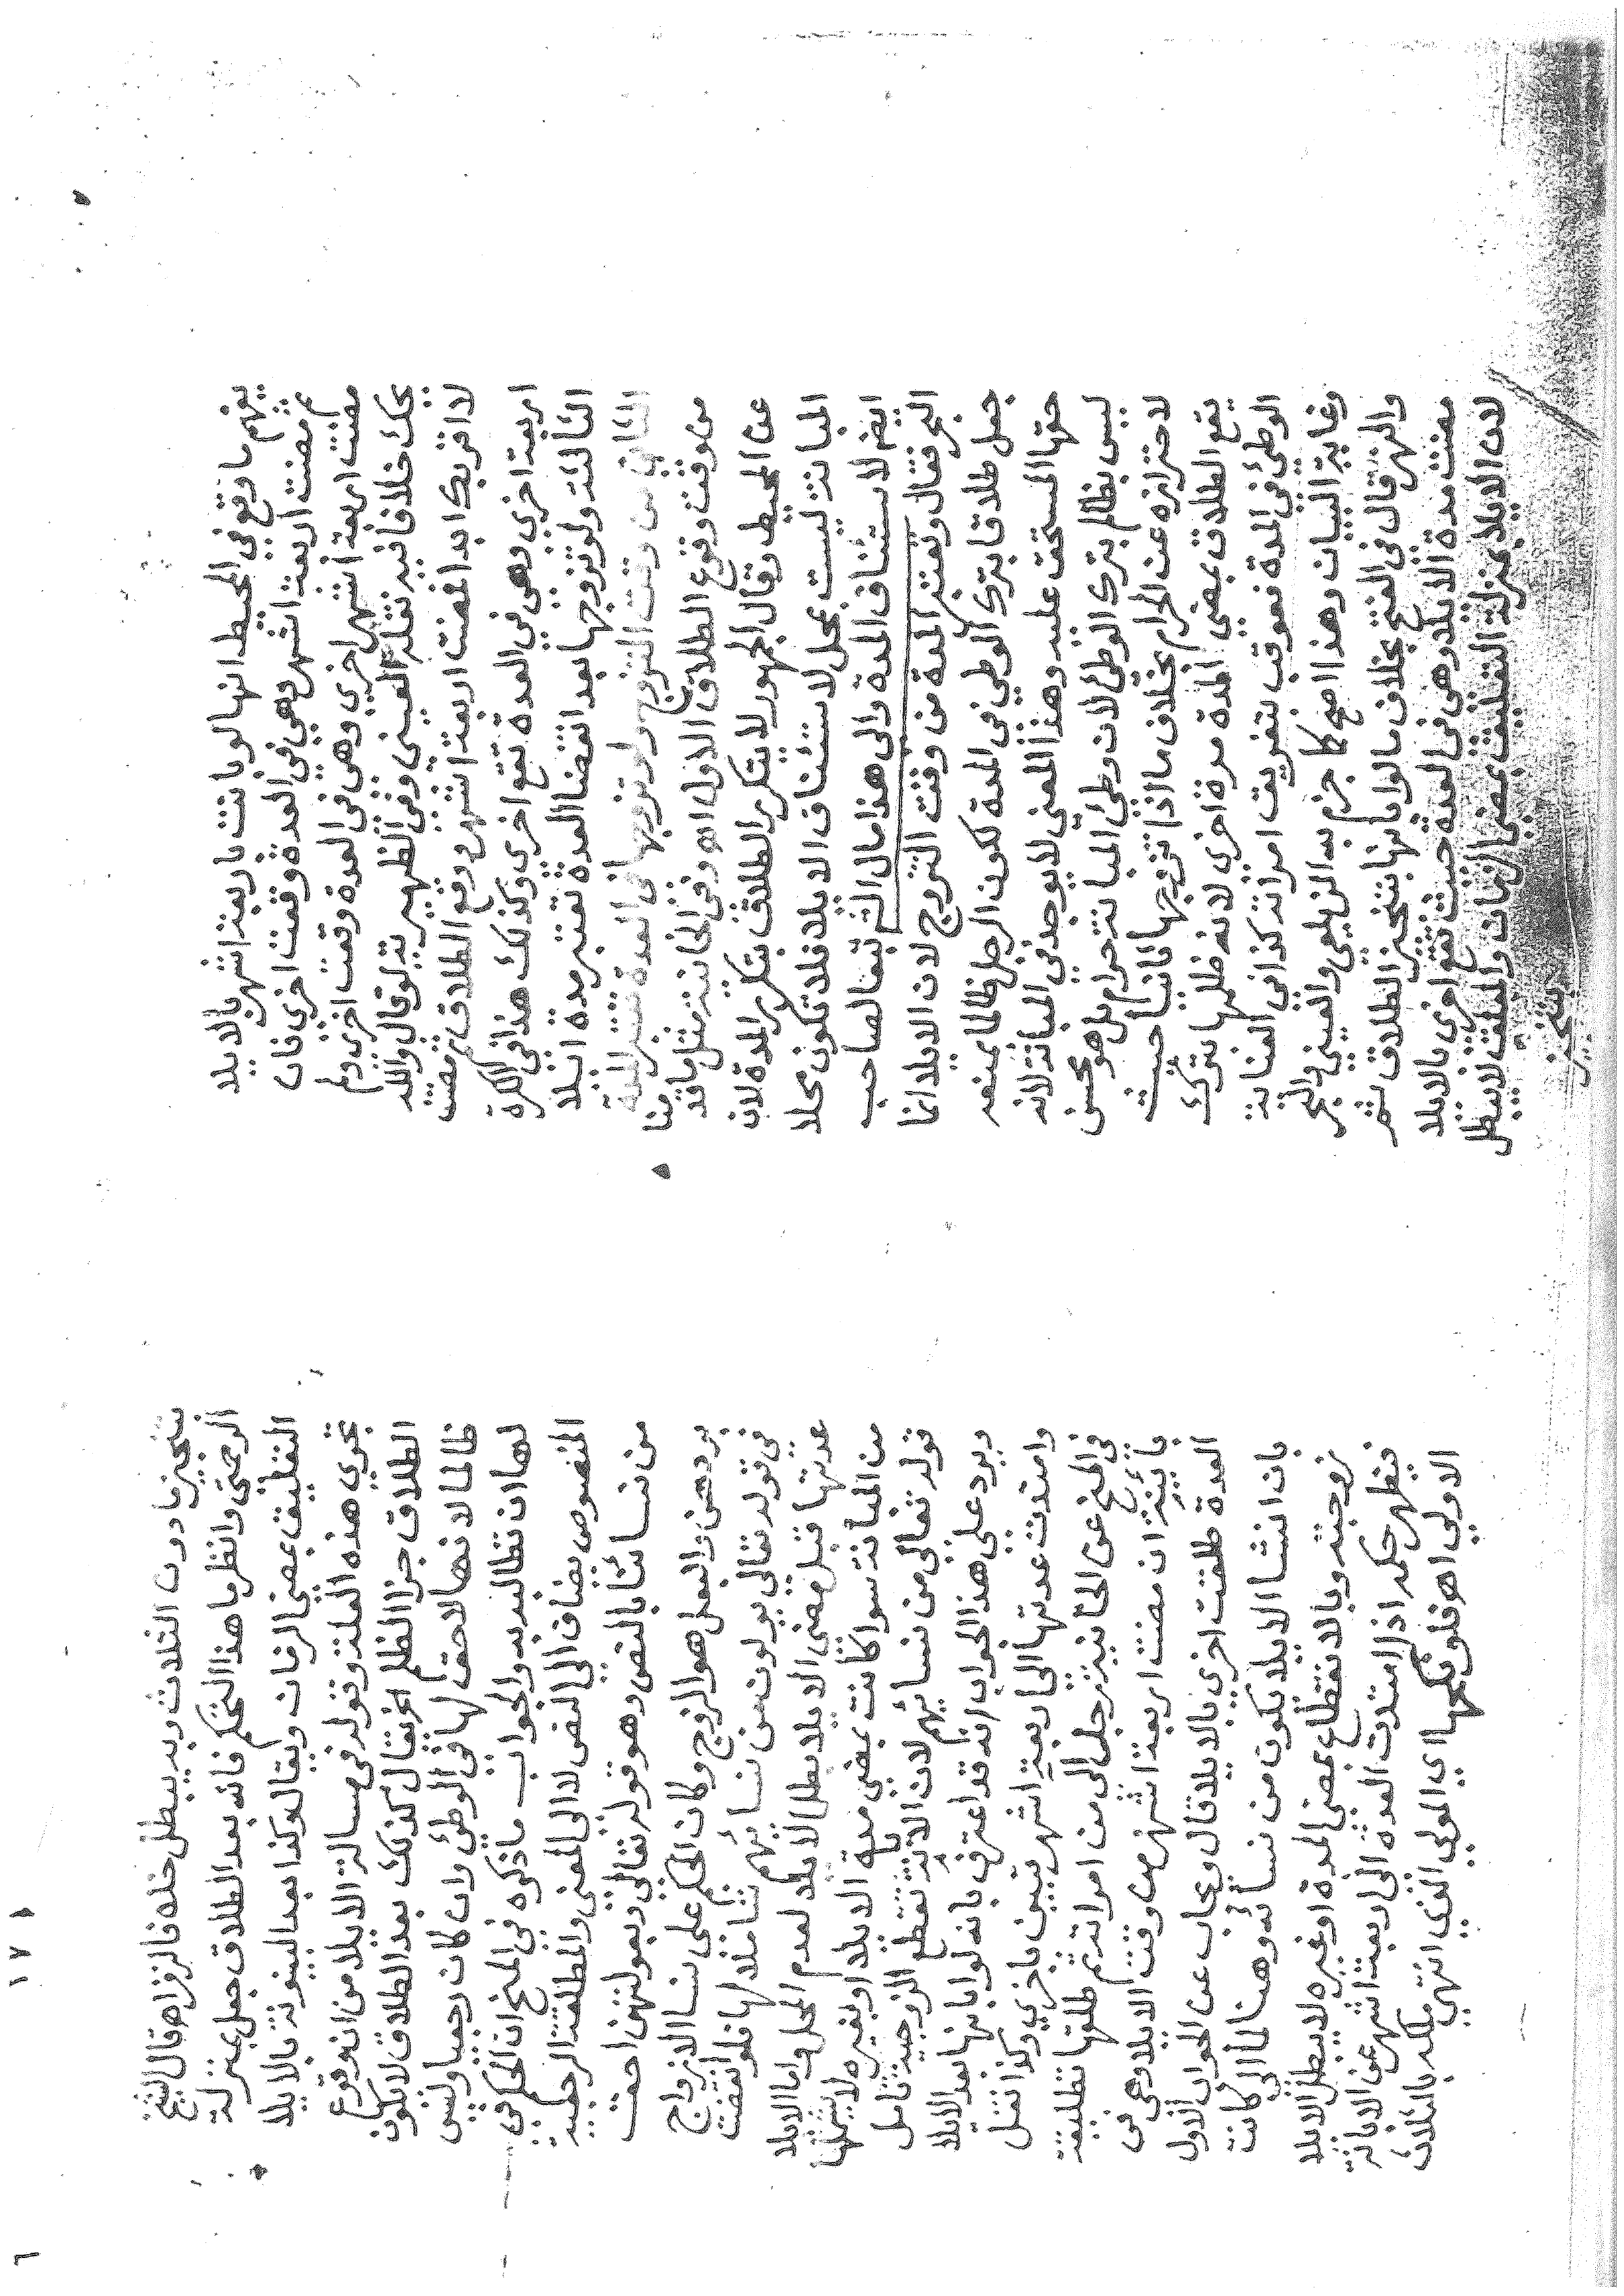 يفهم ما وقع في المحيط انها لو بانت باربعة اشهر بالايلا
ثم مضت اربعة اشهر وهي في العدة وقعت اخرى فان
مضت اربعة اشهر اخرى وهي في العدة وقعت اخرى ولم
يحك خلافا فيه نقله العيني وفي الظهيرية لو قال والله
لا اقربك ابدا فمضت اربعة اشهر ووقع الطلاق ثم مضت
اربعة اخرى وهي في العدة تقع اخرى وكذلك هذا في الكرة
الثالثة ولو تزوجها بعد انقضا العدة تعتبر مدة ايلا
الثاني من وقت التزوج ولو تزوجها في العدة تعتبر المدة هنا
من وقت وقوع الطلاق الاول اه وفي الخانية مثل ما قد
عن المحيط وقال الجمهور لا يتكرر الطلاق بتكرر المدة لان
المبانة ليست بمحل لاستئناف الايلا فلا تكون محلا
ايضا لاستئناف المدة والى هذا مال الشر تبعا لصاحب
البحر فقال وتعتبر المدة من وقت التزوج لان الايلا انما
جعل طلاقا بترك الوطي في المدة لكون الرجل ظالما بمنعه
حقها المستحق عليه وهذا المعنى لا يوجد في المبانة لانه
ليس بظالم بترك الوطئ لان وطئ المبانة حرام بل هو محسن
لاحترازه عن الحرام بخلاف ما اذا تزوجها ثانيا حيث
يقع الطلاق بمضي المدة مرة اخرى لانه ظلمها بترك
الوطئ في المدة فعوقب بتفريق امراته كذا في العناية
وغاية البيان وهذا اصح كما جزم به الزيلعي والعيني والبحر
والنهر قال في الفتح بخلاف ما لو ابانها بتنجيز الطلاق ثم
مضت مدة الايلا وهي في العدة حيث تقع اخرى بالايلا
لان الايلا بمنزلة التعليق بمضي الزمان والمعلق لا يبطل
بتنجيز
بتنجيز ما دون الثلاث وبه يبطل خلافا لزفر اه قال الشيخ
الرحمتي وانظر ما هذا التحكم فانه بعد الطلاق جعل بمنزلة
التعليق بمضي الزمان ويقال وكذا بعد البينونة بالايلا
تجري هذه العلة وقوله في مسالة الايلا من انه وقوع
الطلاق جزا الظلم الخ يقال كذلك بعد الطلاق لا يكون
ظالما لانها لا حق لها في الوطئ وان كان رجعيا وليس
لها ان تطالبه به والجواب ما ذكره في المنح ان الحكم في
المنصوص يضاف الى النص لا الى المعنى والمطلقة الرجعية
من نسائنا بالنص وهو قوله تعالى وبعولتهن احق
بردهن والبعل هو الزوج وكان الحكم على نسا الازواج
في قوله تعالى يولون من نسائهم شاملا لها فلو انقضت
عدتها قبل مضي الايلا بطل الايلا لعدم المحل واما الايلا
من المبانة سوا كانت بمضي مدة الايلا او بغيره لا يشملها
قوله تعالى من نسائهم لان الابانة تقطع الزوجية تامل
ويرد على هذا الجواب انه قد اعترف بانه لو ابانها بعد الايلا
وامتدت عدتها الى اربعة اشهر تبين باخرى وكذا نقل
في المنح عن الخانية رجل الى من امراته ثم طلقها تطليقة
بائنة ان مضت اربعة اشهر من وقت الايلا وهي في
العدة طلقت اخرى بالايلا قال ويجاب عن الجواب الاول
بان انشا الايلا يكون من نسائه وهنا لما الى كانت
زوجته وبالانقطاع بمضي المدة او غيره لا يبطل الايلا
فيظهر حكمه اذا امتدت العدة الى اربعة اشهر عن الابانة
الاولى اه فلو نكحها اي المولي الذي انتهى ملكه بالثلاث